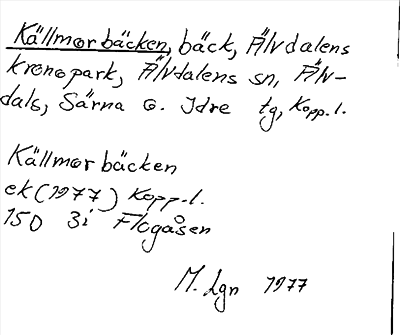 Källmorbäcken, bäck, Älvdalens
kronopark, Älvdalens sn, Älv-
dals, Särna o. Idre tg, Kopp. l.
Källmorbäcken
ek (1977) Kopp. l.
15D 3i Flogåsen
M. Lgn 1977